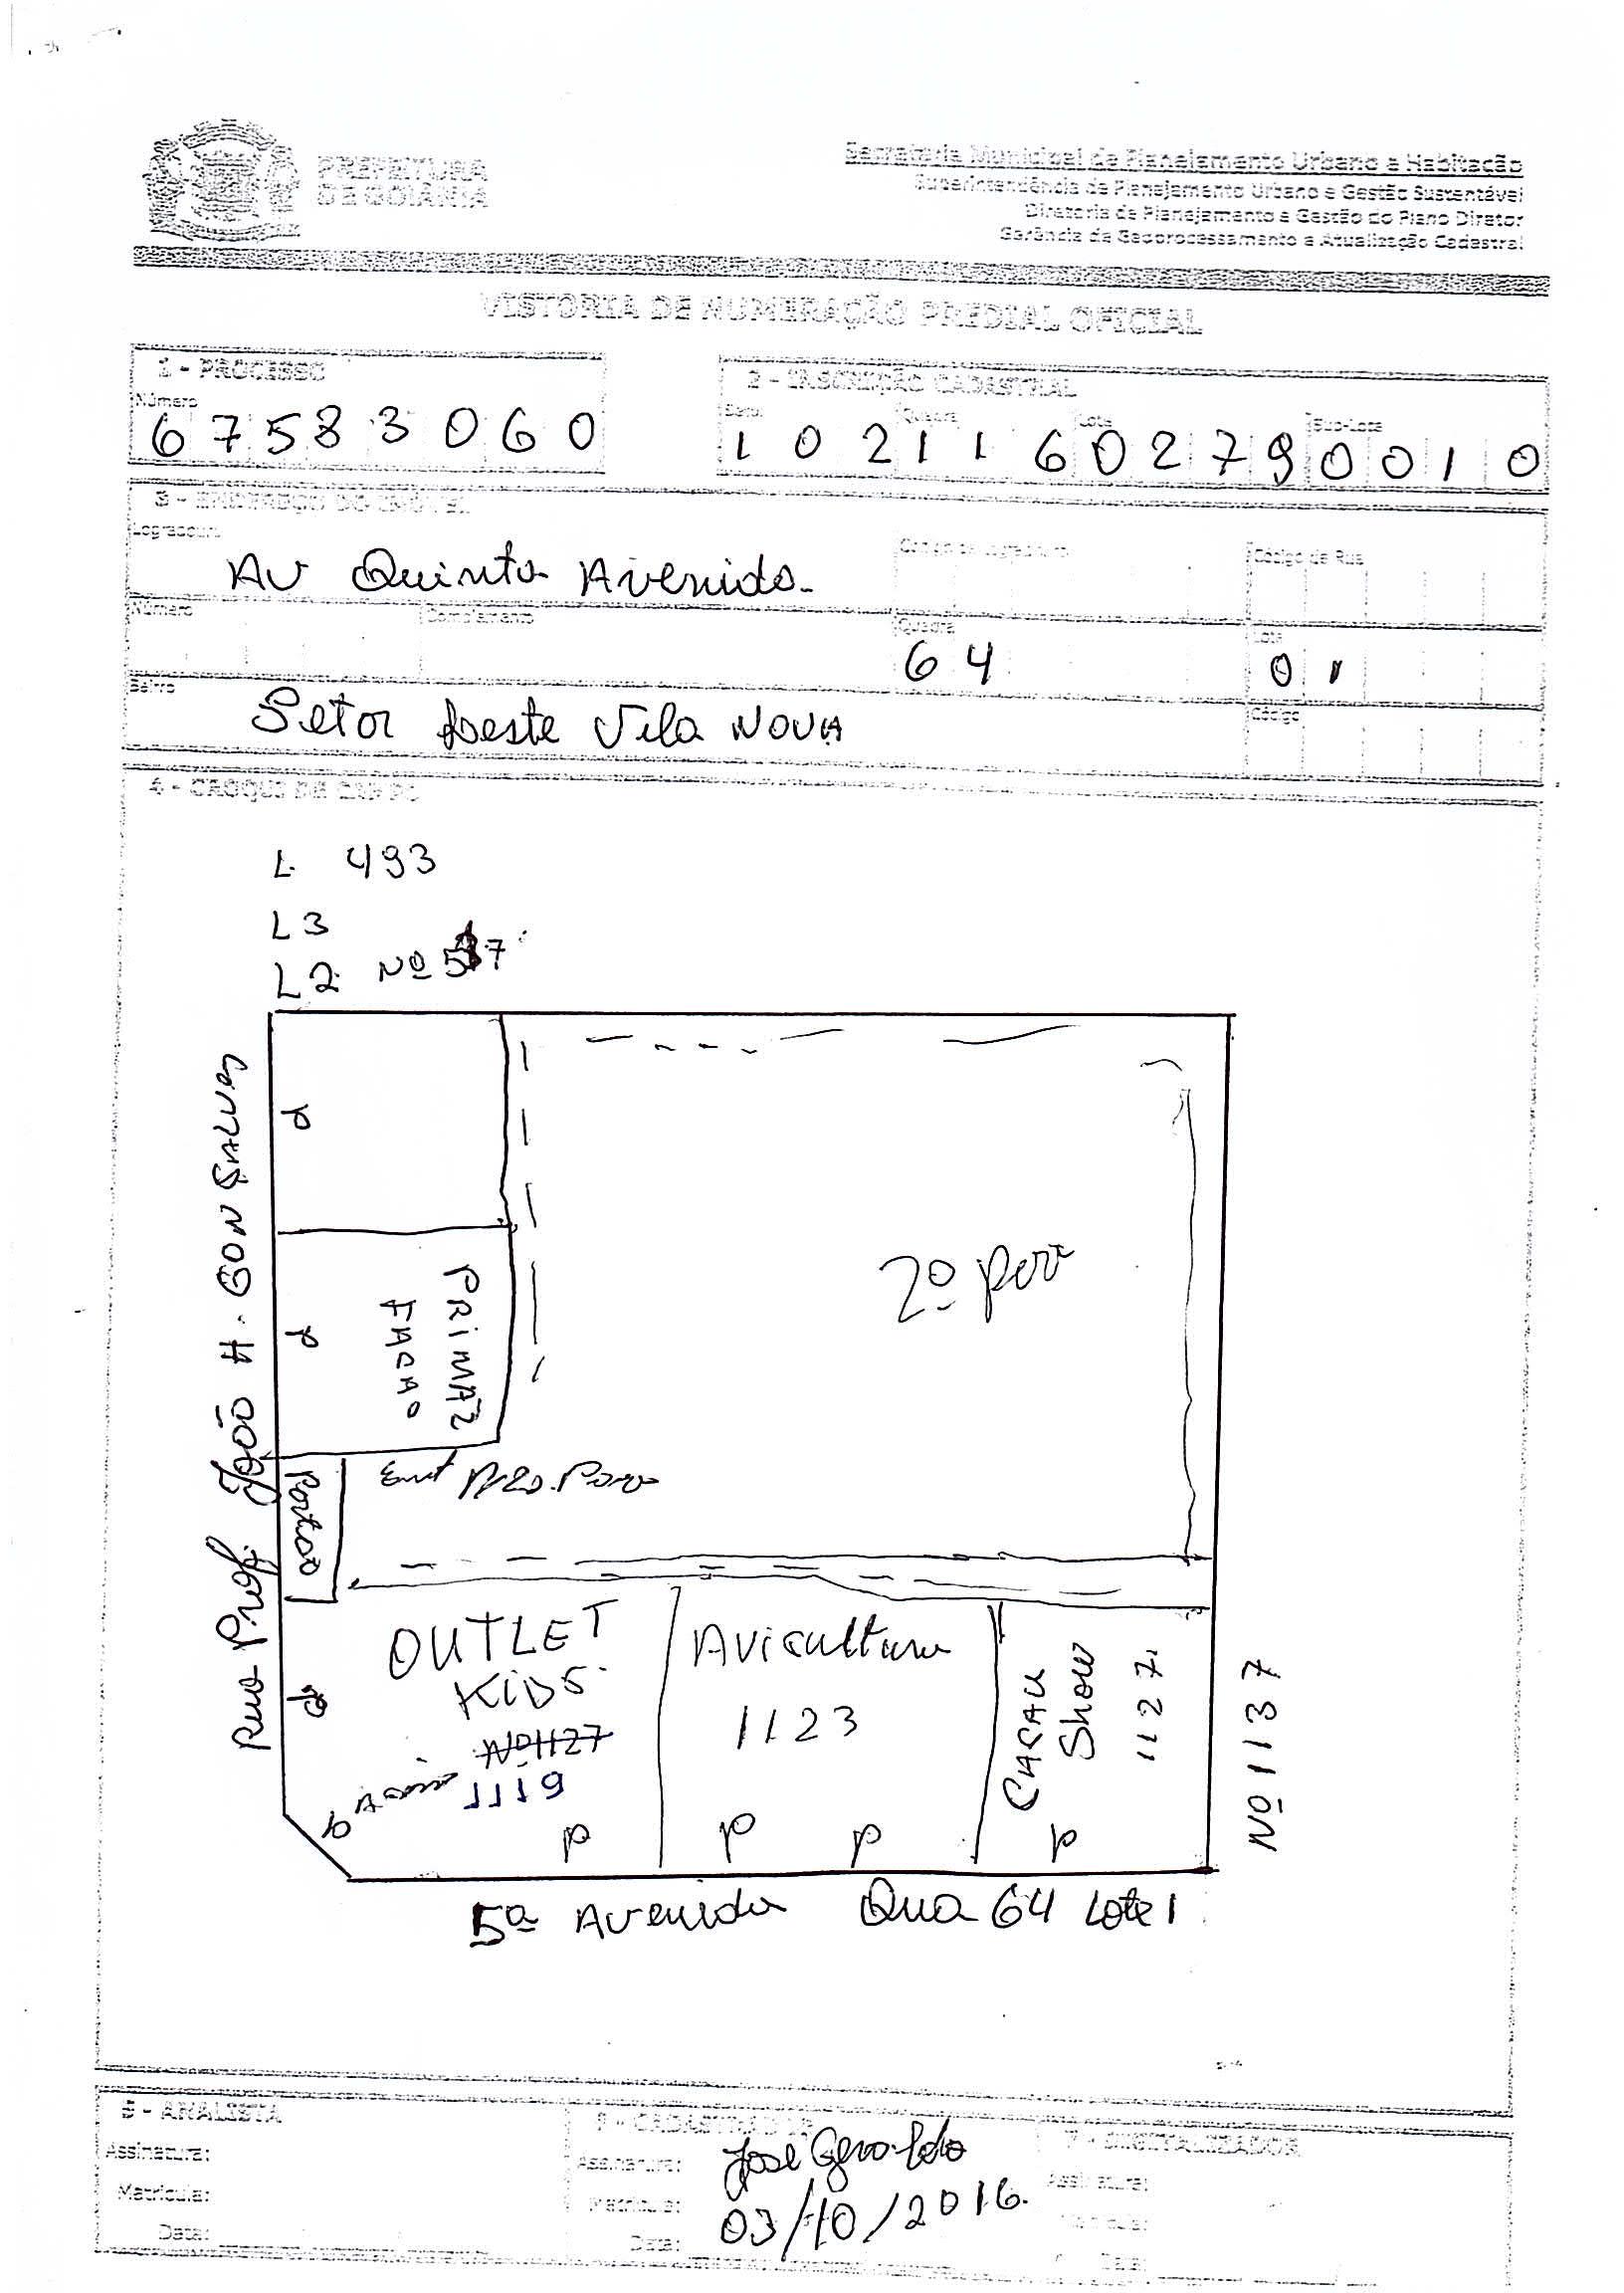 PREFEITURA
DE GOIÂNIA
Secretaria Municipal de Planejamento Urbano e Habitação
Superintendência de Planejamento Urbano e Gestão Sustentável
Diretoria de Planejamento e Gestão do Plano Diretor
Gerência de Geoprocessamento e Atualização Cadastral
VISTORIA DE NUMERAÇÃO PREDIAL OFICIAL
1 - PROCESSO
Número
6 7 5 8 3 0 6 0
2 - INSCRIÇÃO CADASTRAL
Setor Quadra Lote Sub-Lote
1 0 2 1 1 6 0 2 7 9 0 0 1 0
3 - ENDEREÇO DO IMÓVEL
Logradouro
Código de Rua
Av Quinta Avenida
Número Complemento Quadra Lote
6 4
0 1
Bairro
Código
Setor Leste Vila NOVA
4 - CROQUI DE CAMPO
L 493
L3
L2 Nº
Rua Prof. João H. GONSALVES
P
P
PRIMAZ
Portao
2º pav
OUTLET
KIDS
Nº1127
1119
P
P
P
Avicultura
1123
P
P
CASAU
Show
1127
P
Nº 1137
5ª Avenida Qua 64 Lote 1
5 - ANALISTA
Assinatura:
Matrícula:
Data:
Assinatura: José Geraldo
Matrícula:
Data: 03/10/2016.
7 - DIGITALIZADOR
Assinatura:
Matrícula:
Data: